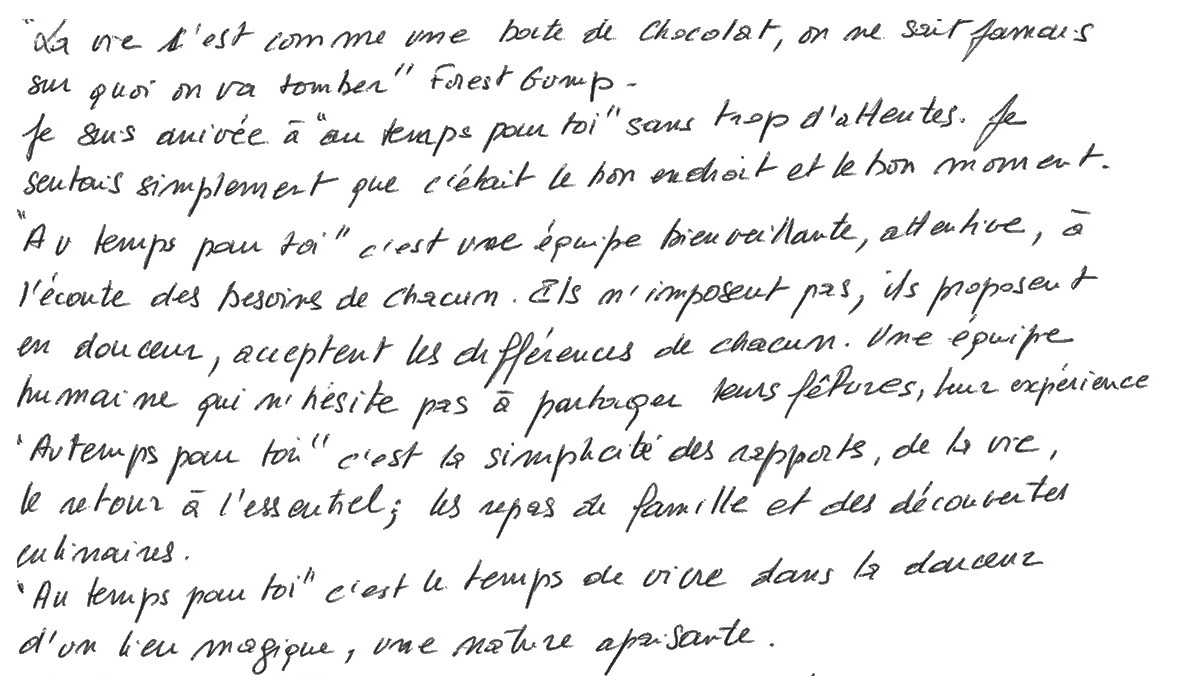 "La vie c'est comme une boite de chocolat, on ne sait jamais
sur quoi on va tomber" Forest Gump -
Je suis arrivée à "au temps pour toi" sans trop d'attentes. Je
sentais simplement que c'était le bon endroit et le bon moment.
"Au temps pour toi" c'est une équipe bienveillante, attentive, à
l'écoute des besoins de chacun. Ils n'imposent pas, ils proposent
en douceur, acceptent les différences de chacun. Une équipe
humaine qui n'hésite pas à partager leurs fêtures, leur expérience
"Au temps pour toi" c'est la simplicité des rapports, de la vie,
le retour à l'essentiel; les repas de famille et des découvertes
culinaires.
"Au temps pour toi" c'est le temps de vivre dans la douceur
d'un lieu magique, une nature apaisante.